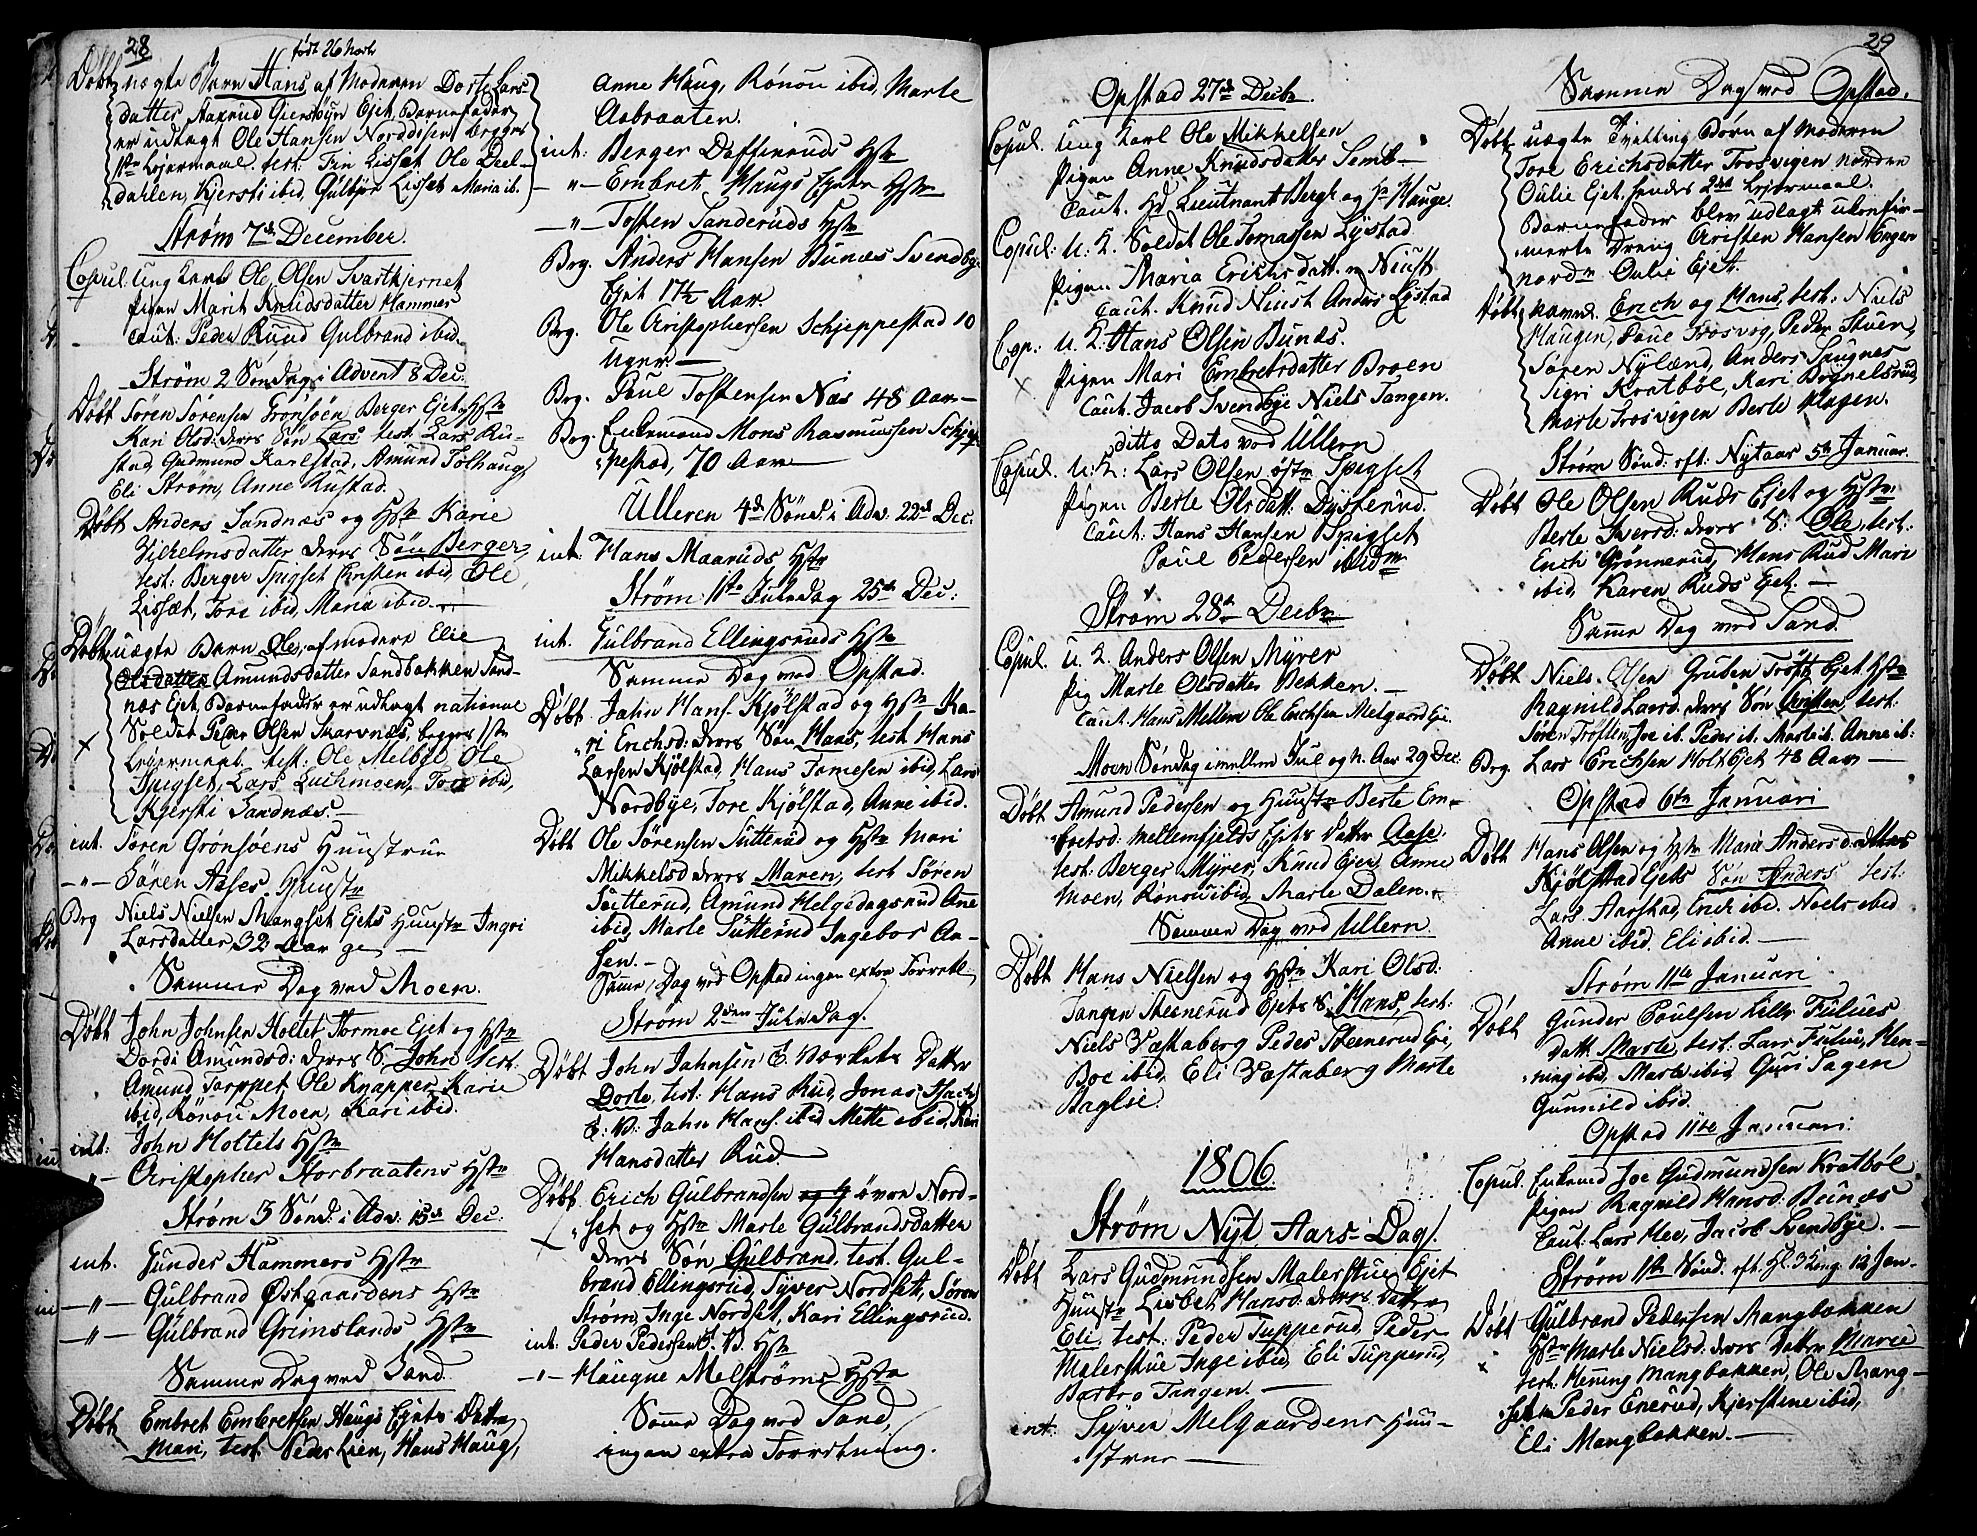 28
født 26 Novb
Døbt uægte Barn Hans af Moderen Dorte Lars-
datter Aaxrud Giersøyen Ejet, Barnefader
er udlagt Ole Hansen Norddisen begges
1ste Lejermaal. test. Fin Lisset Ole Deel-
dahlen, Kjersti ibid, Gulbjør Lisset Maria ib.
Strøm 7de December.
Copul. Ung Karl Ole Olsen Svartkjernet
Pigen Marit Knudsdatter Hammer
Caut: Peder Ruud Gulbrand ibid.
Strøm 2 Søndag i Advent 8 Dec.
Døbt Søren Sørensen Grønsøen Berger Ejet og Hstr
Kari Olsd: deres Søn Lars. test. Lars Ru-
stad, Gudmund Karlstad, Amund Tolhaug,
Eli Strøm, Anne Rustad.
Døbt Anders Sandnæs og Hstr Karie
Vilhelmsdatter deres Søn Berger,
test: Berger Spigset Christen ibid, Ole
Lissæt, Tore ibid, Maria ibid.
Døbt uægte Barn Ole, af modere Elie
Olsdatter Amundsdatter Sandbakken Sand-
næs Ejet, Barnefader er udlagt national
Soldat Peder Olsen Skarvnæs, begges 1ste
Lejermaal. test: Ole Melbye, Ole
Spigset, Lars Luchmoen, Tore ibid,
Kjersti Sandnæs.
int. Søren Grønsøens Huustrue
-"- Søren Aases Huustr
Brg Niels Nielsen Mangset Ejets Huustr Ingri
Larsdatter 32 Aar gl
Samme Dag ved Moen.
Døbt John Johnsen Holtet Stormoe Ejet og Hstr
Dordi Amundsd: deres S. John test.
Amund Sorppet Ole Knapper, Karie
ibid, Rønou Moen, Kari ibid.
int: John Holtets Hstr
" - Christopher Storbraatens Hstr
Strøm 3 Sønd: i Adv: 15de Dec:
int. Gunder Hammers Hstr
-"- Gulbrand Østgaardens Hstr
-"- Gulbrand Grimslands Hstr
Samme Dag ved Sand.
Døbt Embret Embretsen Haugs Ejets Datter
Mari, test Peder Lien, Hans Haug,
Anne Haug, Rønou ibid, Marte
Aabraaten.
int: Berger Dafterruds Hstr
-"- Embret Haugs Ejets Hstr
-"- Tosten Sanderuds Hstr
Brg. Anders Hansen Bunæs Svendby.
Ejet 17½ Aar.
Brg. Ole Christophersen Schjeppestad 10
Uger.
Brg. Poul Tostensen Næs 48 Aar
Brg. Enkemand Mons Rasmussen Schjep-
pestad, 70 Aar
Ulleren 4de Sønd: i Adv: 22de Dec:
int: Hans Maaruds Hstr
Strøm 1ste Juledag 25de Dec:
int. Gulbrand Ellingsruds Hstr
Samme Dag ved Opstad.
Døbt Jahn Hans. Kjølstad og Hstr Ka-
ri Erichsd: deres Søn Hans, test Hans
Larsen Kjølstad, Hans Tomesen ibid, Lars
Nordbye, Tore Kjølstad, Anne ibid.
Døbt Ole Sørensen Sutterud og Hstr Mari
Mikkelsd deres Maren, test Søren
Sutterud, Amund Helgedagsrud Ane
ibid, Marte Sutterud Ingebor An-
sen.
Same Dag ved Opstad ingen extra Forretn.
Strøm 2den Jule Dag.
Døbt John Jahnsen E. Værkets Datter
Dorte, test: Hans Rud, Jonas Isach
E: V: Jahn Hans. ibid Mette ibid, Kari
Hansdatter Rud.
Døbt Erich Gulbrandsen og H øvre Nord-
set og Hstr Marte Gulbrandsdatter
deres Søn Gulbrand, test. Gul-
brand Ellingsrud, Syver Nordsett, Søren
Strøm, Inge Nordset, Kari Ellingsrud.
int: Peder Pedersen E. V. Hstr
-"- Haugne Melstrøms Hstr
Same Dag ved Sand,
ingen extra Forretning.
29
Opstad 27de Decbr.
Copul. Ung Karl Ole Mikkelsen
Pigen Anne Knudsdatter Semb
Caut. Hd Lieutnant Bergh og Hauge.
Copul: U. K. Soldat Ole Tomassen Lystad
Pigen Maria Erichsdatt. Niust
Caut. Knud Niust Anders Lystad
Cop: U. K: Hans Olsen Bunæs.
Pigen Mari Embretsdatter Broen
Caut. Jacob Svendbye Niels Tangen.
ditto Dato ved Ullern
Copul. U: K: Lars Olsen østr Spigset
Pigen Berte Olsdatt: Dysterud.
Caut: Hans Hansen Spigset
Poul Pedersen ibidm
Strøm 28de Decbr
Copul. U. K. Anders Olsen Myrer
Pig Marte Olsdatter Bekken.
Caut. Hans Mellem Ole Erichsen Melgaard Eje.
Moen Søndag imellem Jul og N. Aar 29 Dec.
Døbt Amund Pedersen og Huustr Berte Em-
bretsd. Mellemfjelds Ejets Datter Aase.
test. Berger Myrer, Knud Ejer, Anne
Moen, Rønou ibid, Marte Dalen.
Samme Dag ved Ullern.
Døbt Hans Nielsen og Hstr Kari Olsd:
Tangen Skenerud Ejets S. Hans, test.
Niels Væstaberg Peder Skenerud Eje,
Boe ibid, Eli Væstaberg Marte
Baglie.
1806.
Strøm Nyt Aars-Dag.
Døbt Lars Gudmundsen Malerstue Ejet
Huustr Lisbet Hansd: deres Datter
Eli test: Peder Tupperud, Peder
Malerstue Inge ibid, Eli Tupperud,
Barbro Tangen.
int. Syver Melgaardens Huu-
strue
Samme Dag ved Opstad.
Døbt uægte Tvetling Børn af Moderen
Tore Erichsdatter Trosvigen nordre
Oulie Ejet, hendes 2det Lejermaal.
Barnefader blev udlagt ukonfir-
merte Dreng Christen Hansen Enger
nordr Oulie Ejet.
Døbt navnl. Erich og Hans, test: Niels
Haugen, Poul Trosvog, Peder Stuen,
Søren Nylænd, Anders Saugnes,
Sigri Kratbøl, Kari Brynelsrud,
Marte Trosvigen Berte Hagen.
Strøm Sønd: eft: Nytaar 5te Januar.
Døbt Ole Olsen Ruds Ejet og Hstr
Berte Iversd: deres S: Ole, test:
Erich Grønnerud, Hans Rud Mari
ibid, Karen Ruds Ejet.
Samme Dag ved Sand.
Døbt Niels Olsen Gruben Trøften Ejet Hstr
Ragnild Larsd: deres Søn Christen, test:
Søren Trøften, Joe ib. Peder ib. Marte ib. Anne ib:
Brg. Lars Erichsen Holt Ejet 48 Aar
Opstad 6te Januari
Døbt Hans Olsen og Hstr Mari Andersd: deres
Kjølstad Ejets Søn Anders test:
Lars Aarstad, Erich ibid. Noels ibid
Anne ibid. Eli ibid.
Strøm 11te Januari
Døbt Gunder Poulsen Lille Fulues
Datt. Marte, test. Lars Fulu, Hen-
ning ibid, Marte ibid, Guri Sagen
Gunnild ibid.
Opstad 11te Januari.
Copul. Enkemd Joe Gudmundsen Kratbøl
Pigen Ragnild Hansd: Bunæs
Caut: Lars Moe, Jacob Svendbye.
Strøm 1ste Sønd. eft. Hl. 3 Kong. 12 Jan.
Døbt Gulbrand Pedersen Mangbakken
Hstr Marte Nielsd: deres Datter Marie
test. Hening Mangbakken, Ole Mang-
set Peder Enerud, Kjerstine ibid,
Eli Mangbakken.